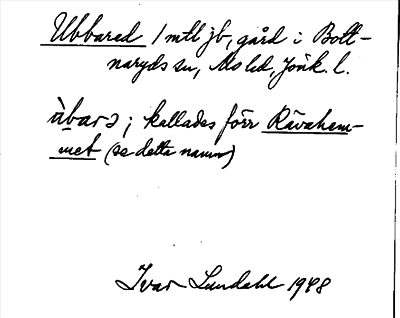 Ubbared 1 mtl jb, gård i Bott-
naryds sn, Mo hd, Jönk. l.
àbarə; kallades förr Rävahem-
met (se detta namn)
Ivar Lundahl 1948